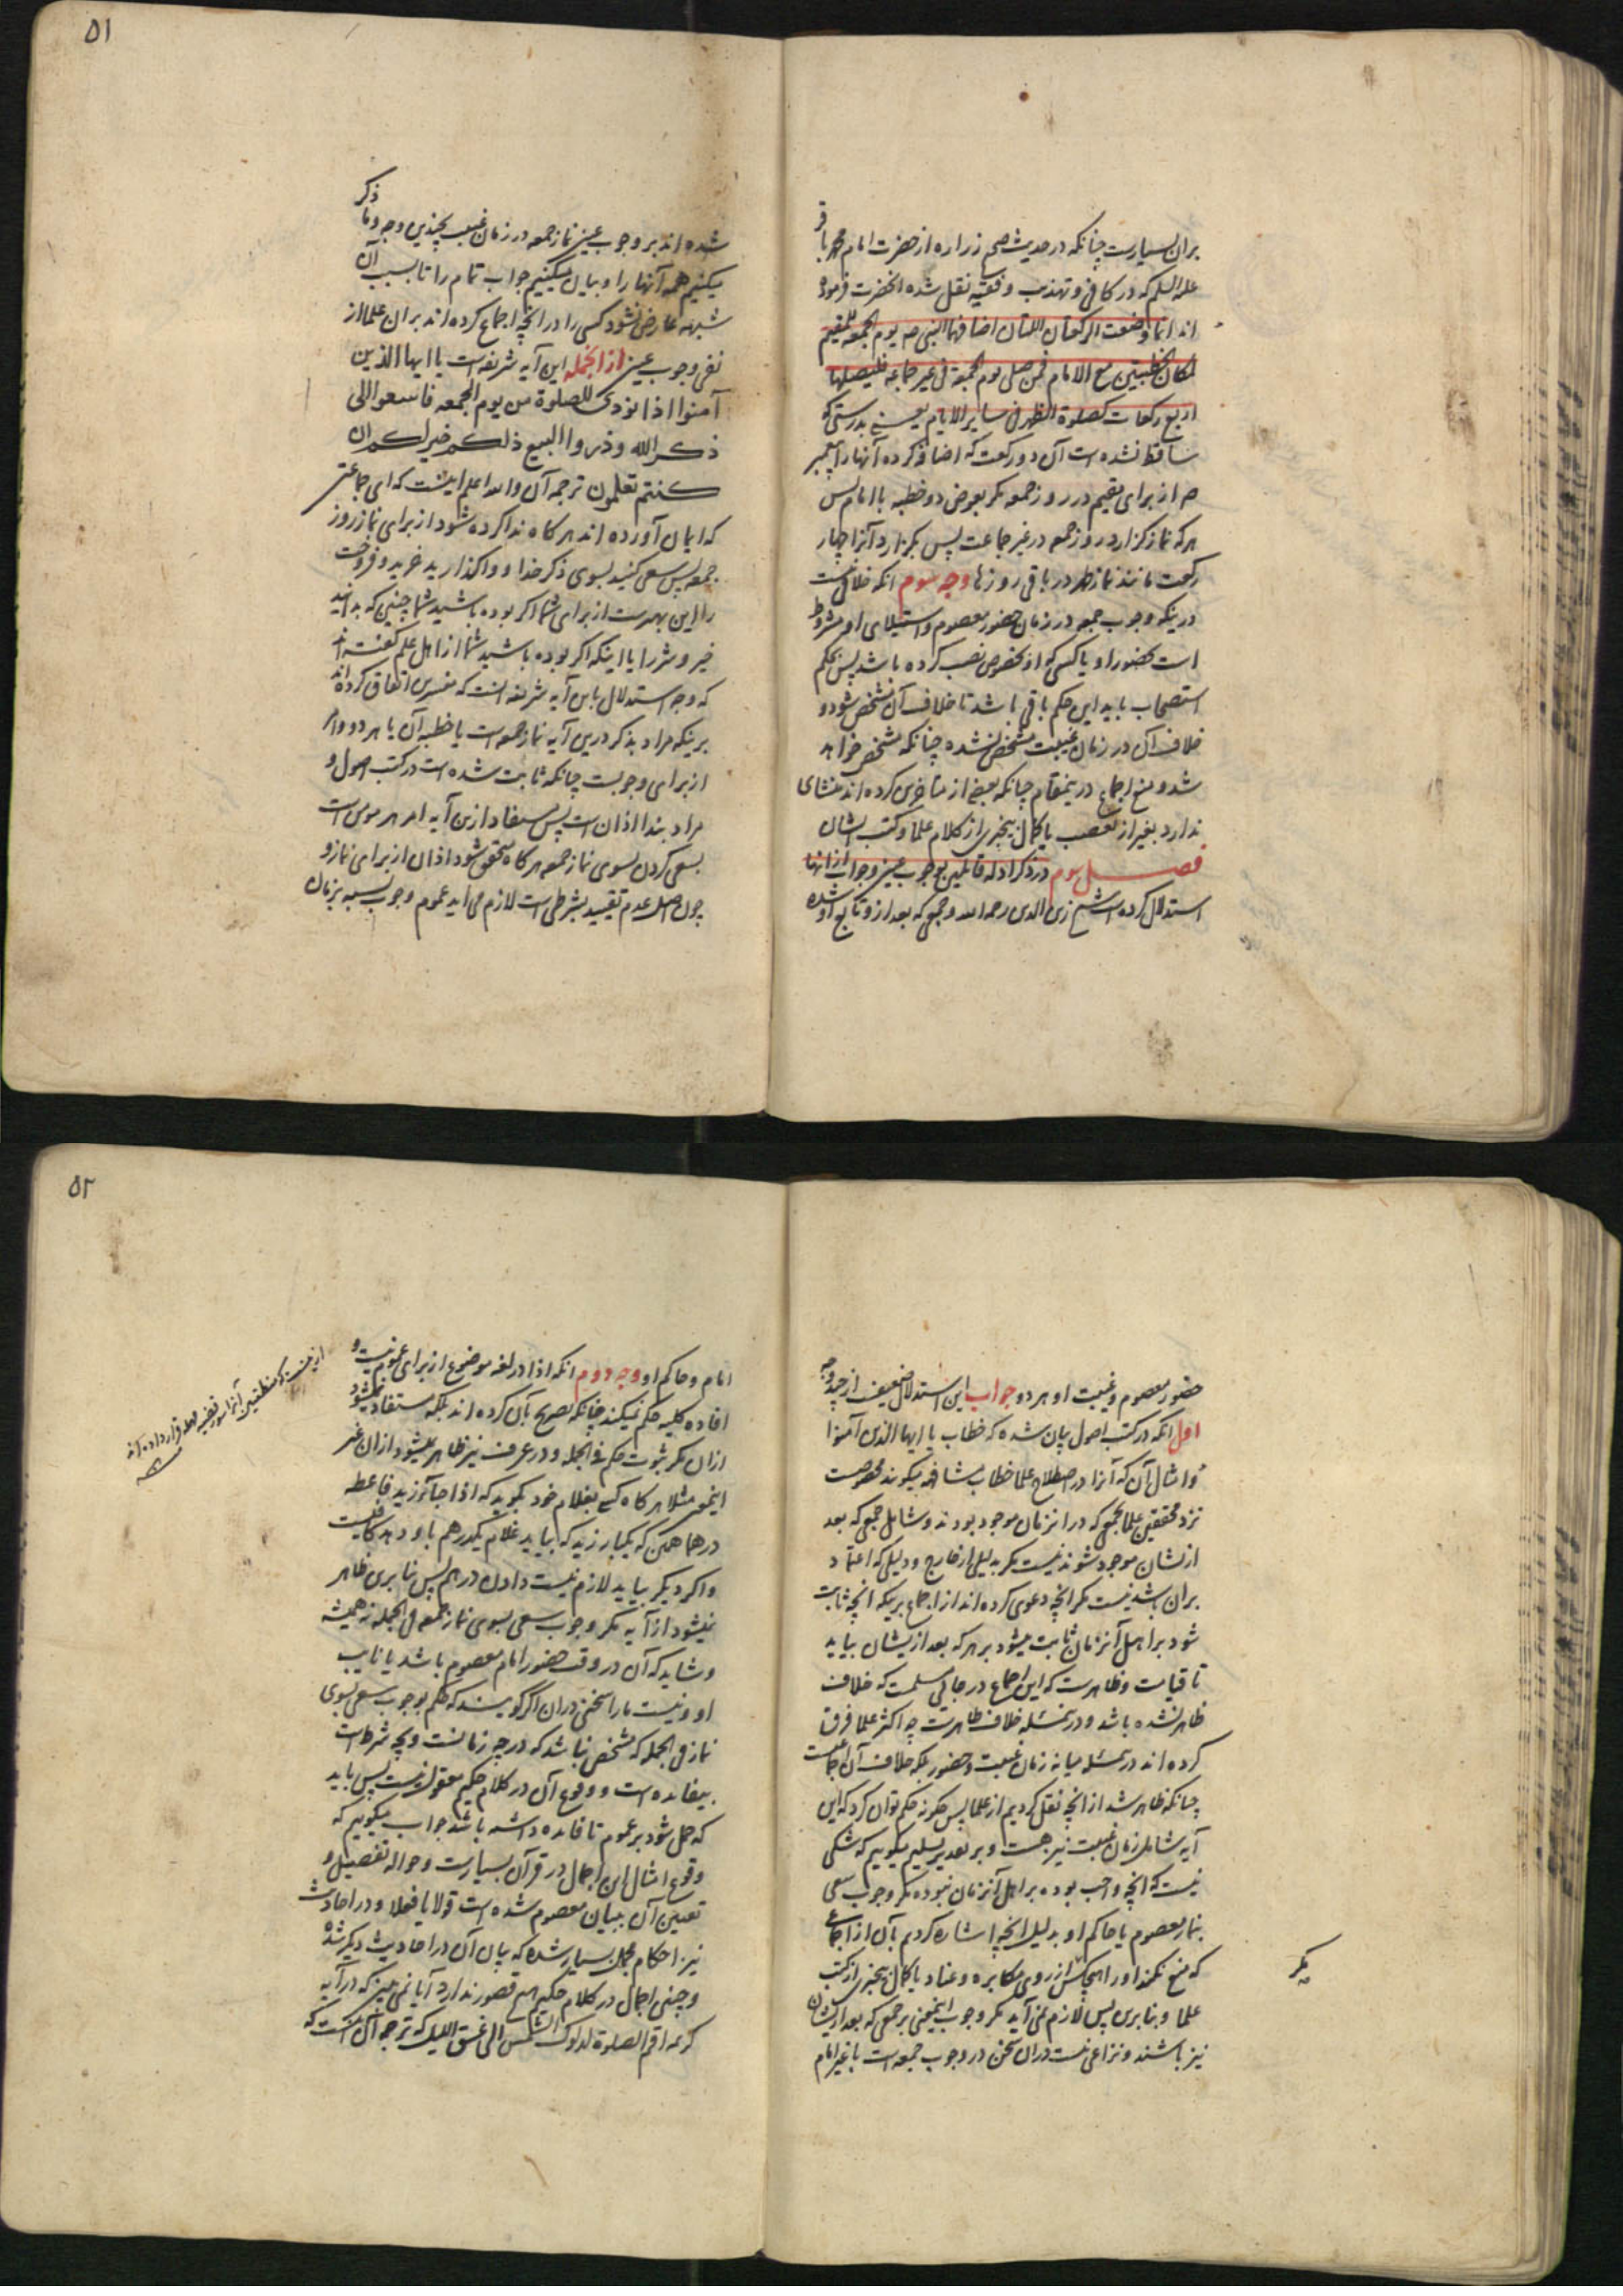 بران بسیارست چنانکه در حدیث صحیح زراره از حضرت امام محمد باقر
علیه السلم که در کافی و تهذیب و فقیه نقل شده انحضرت فرموده
اند انما وضعت الرکعتان اللتان اضافهما النبی صم یوم الجمعه للمقیم
لمکان الخطبتین مع الامام فمن صلی یوم الجمعة فی غیر جماعه فلیصلها
اربع رکعات کصلوة الظهر فی سایر الایام یعنی بدرستی که
ساقط نشده است آن دو رکعت که اضافه کرده آنها را پیغمبر
صم از برای مقیم در روز جمعه مگر بعوض دو خطبه با امام پس
هر که نماز گزارد روز جمعه در غیر جماعت پس بگزارد آنرا چهار
رکعت مانند نماز ظهر در باقی روزها وجه سوم انکه خلافی نیست
درینکه وجوب جمعه در زمان حضور معصوم و استیلای او مشروط
است بحضور او یا کسی که او بخصوص نصب کرده باشد پس بحکم
استصحاب باید این حکم باقی باشد تا خلاف آن مشخص شود و
خلاف آن در زمان غیبت مشخص نشده چنانکه مشخص خواهد
شد و منع اجماع درینمقام چنانکه بعضی از متاخرین کرده اند منشای
ندارد بغیر از تعصب یا کمال بیخبری از کلام علما و کتب ایشان
فصل سوم در ذکر ادله قائلین بوجوب عینی و جواب از انها
استدلال کرده است شیخ زین الدین رحمه الله و جمعی که بعد از و تابع او شده
۵۱
ذکر
شده اند بر وجوب عینی نماز جمعه در زمان غیبت بچندین وجه و ما
میکنیم همه آنها را و بیان میکنیم جواب تمام را تا بسبب آن
شبهه عارض نشود کسی را در انچه اجماع کرده اند بران علما از
نفی وجوب عینی از انجمله این آیه شریفه است یا ایها الذین
آمنوا اذا نودی للصلوة من یوم الجمعه فاسعوا الی
ذکر الله وذروا البیع ذلکم خیر لکم ان
کنتم تعلمون ترجمه آن والله اعلم اینست که ای جماعتی
که ایمان آورده اند هر کاه ندا کرده شود از برای نماز روز
جمعه پس سعی کنید بسوی ذکر خدا و واگذارید خرید و فروخت
را این بهترست از برای شما اگر بوده باشید شما چنین که بدانید
خیر و شر را یا اینکه اگر بوده باشید شما از اهل علم گفته اند
که وجه استدلال باین آیه شریفه انست که مفسرین اتفاق کرده اند
برینکه مراد بذکر درین آیه نماز جمعه است یا خطبه آن یا هر دو و امر
از برای وجوبست چنانکه ثابت شده است در کتب اصول و
مراد بندا اذان است پس مستفاد ازین آیه امر هر مومن است
بسعی کردن بسوی نماز جمعه هر کاه متحقق شود اذان از برای نماز و
چون اصل عدم تقیید بشرطی است لازم می اید عموم وجوب نسبت بزمان
حضور معصوم و غیبت او هر دو جواب این استدلال ضعیف از چند وجه
اول انکه در کتب اصول بیان شده که خطاب یا ایها الذین آمنوا
و امثال آن که آنرا در اصطلاح علما خطاب مشافهه میگویند مخصوصست
نزد محققین علما بجمعی که در انزمان موجود بودند و شامل جمعی که بعد
ازیشان موجود شوند نیست مگر بدلیلی از خارج و دلیلی که اعتماد
بران باشد نیست مگر انچه دعوی کرده اند از اجماع برینکه انچه ثابت
شود بر اهل آنزمان ثابت میشود بر هر که بعد ازیشان بیاید
تا قیامت و ظاهرست که این اجماع در جائی مسلمست که خلاف
ظاهر نشده باشد و درینمسئله خلاف ظاهرست چه اکثر علما فرق
کرده اند درینمسئله میانه زمان غیبت و حضور بلکه خلاف آن اجماعیست
چنانکه ظاهر شد از انچه نقل کردیم از علما پس چگونه حکم توان کرد که این
آیه شامل زمان غیبت نیز هست و بر تقدیر تسلیم میگوییم که شکی
نیست که انچه واجب بوده بر اهل آنزمان نبوده مگر وجوب سعی
بنماز معصوم یا حاکم او بدلیل انچه اشاره کردیم بآن از اجماعی
که منع نمکند او را هیچکس از روی مکابره و عناد یا کمال بیخبری از کتب
علما و بنابرین پس لازم نمی آید مگر وجوب اینمعنی بر جمعی که بعد ازیشان
نیز باشند و نزاعی نیست دران سخن در وجوب جمعه است با غیر امام
مگر
۵۲
امام و حاکم او وجه دوم انکه اذا در لغه موضوع از برای عموم نیست و
افاده کلیه حکم نمیکند چنانکه تصریح بآن کرده اند بلکه مستفاد نمیشود
ازان مگر ثبوت حکم فی الجمله و در عرف نیز ظاهر نمیشود ازان غیر
اینمعنی مثلا هر کاه کسی بغلام خود بگوید که اذا جاءک زید فاعطه
درهما همین که یکبار زید که بیاید غلام یکدرهم باو دهد کافیست
و اگر دیگر بیاید لازم نیست دادن درهم پس بنابرین ظاهر
نمیشود از آیه مگر وجوب سعی بسوی نماز جمعه فی الجمله نه همیشه
و شاید که آن در وقت حضور امام معصوم باشد یا نایب
او و نیست ما را سخنی دران اگر گویند که حکم بوجوب سعی بسوی
نماز فی الجمله که مشخص نباشد که در چه زمانست و بچه شرط است
بیفایده است و وقوع آن در کلام حکیم معقول نیست پس باید
که حمل شود بر عموم تا فایده داشته باشد جواب میگوییم که
وقوع امثال این اجمال در قرآن بسیارست و حواله تفصیل و
تعیین آن ببیان معصوم شده است قولا یا فعلا و در احادیث
نیز احکام مجمل بسیار شده که بیان آن در احادیث دیگر شده
و چنین اجمال در کلام حکیم هیچ قصور ندارد آیا نمی بینی که در آیه
کریمه اقم الصلوة لدلوک الشمس الی غسق اللیل که ترجمه آن اینست که
ازینست که منطقیین آنرا سور قضیه مهمله قرار داده اند